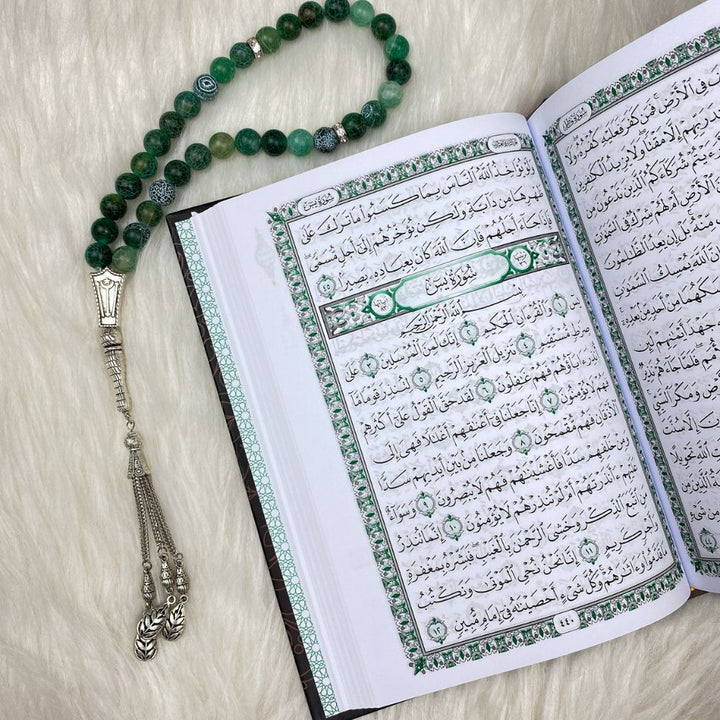 سُورَةُ فَاطِرٍ
فِي ٱلْأَرْضِ فَمَن كَفَرَ فَعَلَيْهِ كُفْرُهُۥ وَلَا
رَبِّهِمْ إِلَّا مَقْتًا وَلَا يَزِيدُ ٱلْكَٰفِرِينَ
شُرَكَآءَكُمُ ٱلَّذِينَ تَدْعُونَ مِن
ٱلْأَرْضِ أَمْ لَهُمْ شِرْكٌ فِي
مِّنْهُ بَلْ إِن يَعِدُ ٱلظَّٰلِمُونَ
ٱللَّهَ يُمْسِكُ ٱلسَّمَٰوَٰتِ
مِنْ أَحَدٍ مِّنۢ بَعْدِهِۦٓ
جَهْدَ أَيْمَٰنِهِمْ لَئِن
فَلَمَّا جَآءَهُمْ
وَمَكْرَ ٱلسَّيِّئِ
سُورَةُ يسٓ
وَلَوْ يُؤَاخِذُ ٱللَّهُ ٱلنَّاسَ بِمَا كَسَبُوا۟ مَا تَرَكَ عَلَىٰ
ظَهْرِهَا مِن دَآبَّةٍ وَلَٰكِن يُؤَخِّرُهُمْ إِلَىٰٓ أَجَلٍ مُّسَمًّى
فَإِذَا جَآءَ أَجَلُهُمْ فَإِنَّ ٱللَّهَ كَانَ بِعِبَادِهِۦ بَصِيرًۢا ٤٥
سُورَةُ يسٓ
بِسْمِ ٱللَّهِ ٱلرَّحْمَٰنِ ٱلرَّحِيمِ
يسٓ ١ وَٱلْقُرْءَانِ ٱلْحَكِيمِ ٢ إِنَّكَ لَمِنَ ٱلْمُرْسَلِينَ ٣ عَلَىٰ
صِرَٰطٍ مُّسْتَقِيمٍ ٤ تَنزِيلَ ٱلْعَزِيزِ ٱلرَّحِيمِ ٥ لِتُنذِرَ قَوْمًا مَّآ
أُنذِرَ ءَابَآؤُهُمْ فَهُمْ غَٰفِلُونَ ٦ لَقَدْ حَقَّ ٱلْقَوْلُ عَلَىٰٓ أَكْثَرِهِمْ
فَهُمْ لَا يُؤْمِنُونَ ٧ إِنَّا جَعَلْنَا فِيٓ أَعْنَٰقِهِمْ أَغْلَٰلًا فَهِيَ إِلَى
ٱلْأَذْقَانِ فَهُم مُّقْمَحُونَ ٨ وَجَعَلْنَا مِنۢ بَيْنِ أَيْدِيهِمْ سَدًّا
وَمِنْ خَلْفِهِمْ سَدًّا فَأَغْشَيْنَٰهُمْ فَهُمْ لَا يُبْصِرُونَ ٩ وَسَوَآءٌ
عَلَيْهِمْ ءَأَنذَرْتَهُمْ أَمْ لَمْ تُنذِرْهُمْ لَا يُؤْمِنُونَ ١٠ إِنَّمَا تُنذِرُ
مَنِ ٱتَّبَعَ ٱلذِّكْرَ وَخَشِيَ ٱلرَّحْمَٰنَ بِٱلْغَيْبِ فَبَشِّرْهُ بِمَغْفِرَةٍ
وَأَجْرٍ كَرِيمٍ ١١ إِنَّا نَحْنُ نُحْيِ ٱلْمَوْتَىٰ وَنَكْتُبُ
مَا قَدَّمُوا۟ وَءَاثَٰرَهُمْ وَكُلَّ شَيْءٍ أَحْصَيْنَٰهُ فِيٓ إِمَامٍ مُّبِينٍ ١٢
٤٤٠